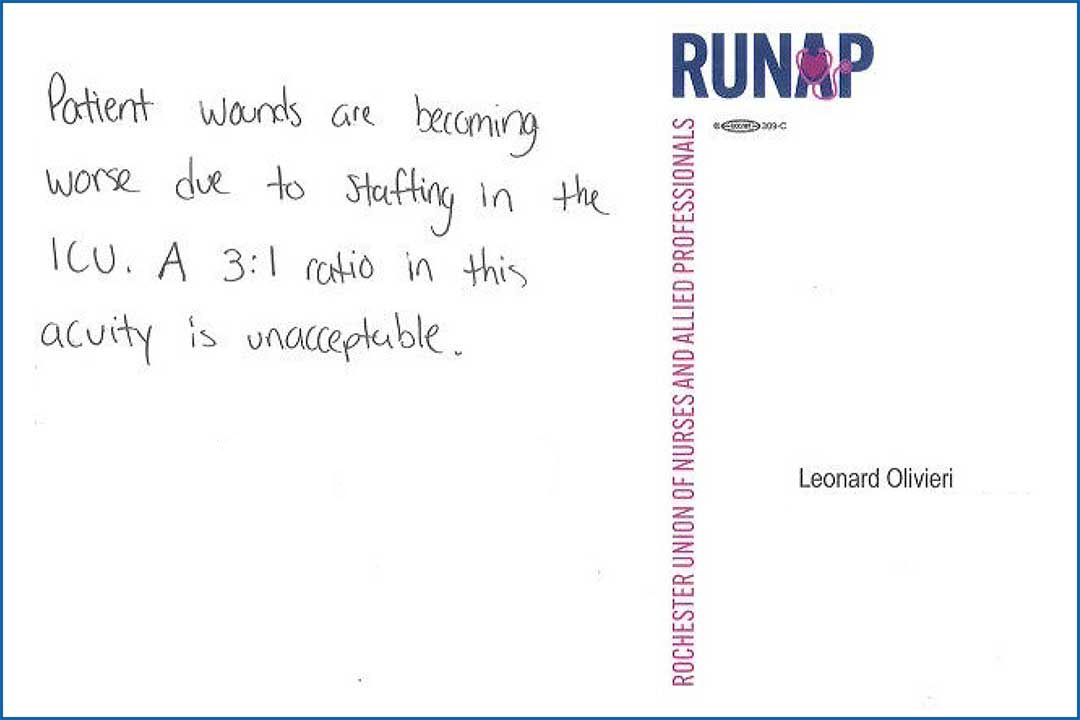 Patient wounds are becoming
worse due to staffing in the
ICU. A 3:1 ratio in this
acuity is unacceptable.
RUNAP
309-C
ROCHESTER UNION OF NURSES AND ALLIED PROFESSIONALS
Leonard Olivieri